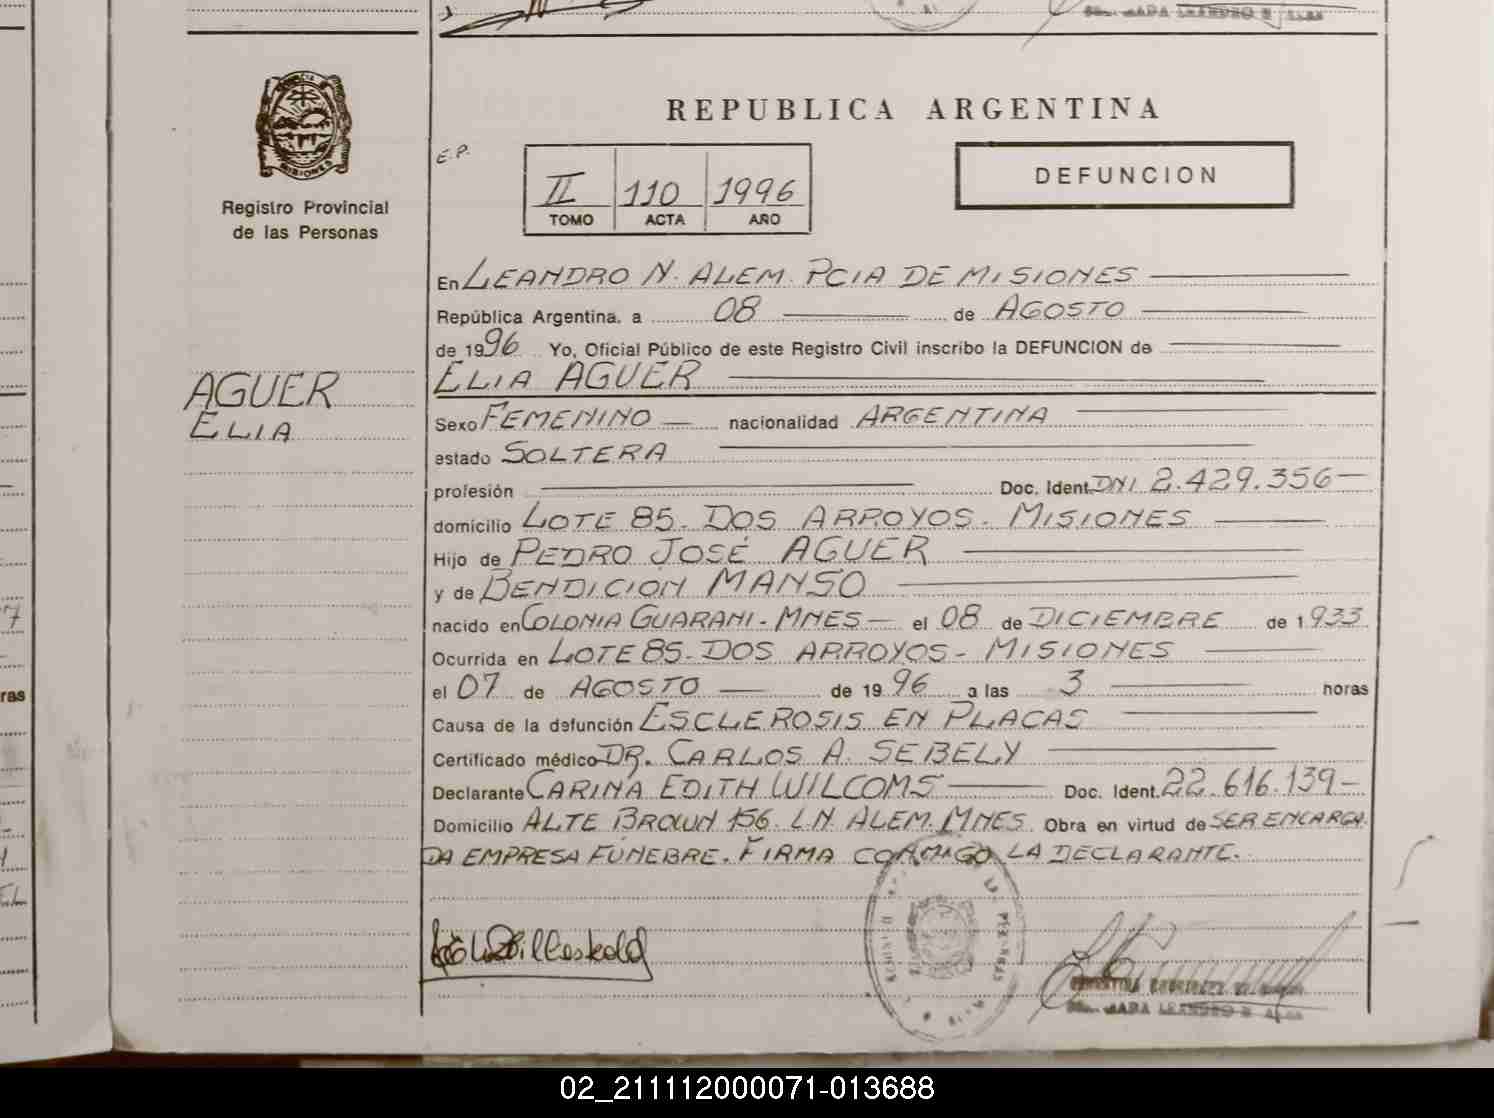 REPUBLICA ARGENTINA
MISIONES
Registro Provincial
de las Personas
E.P.
II 110 1996
TOMO ACTA AÑO
DEFUNCION
En LEANDRO N. ALEM. PCIA DE MISIONES
República Argentina, a 08 de AGOSTO
de 1996 Yo, Oficial Público de este Registro Civil inscribo la DEFUNCION de
ELIA AGUER
AGUER
ELIA
Sexo FEMENINO nacionalidad ARGENTINA
estado SOLTERA
profesión Doc. Ident. DNI 2.429.356
domicilio LOTE 85. DOS ARROYOS. MISIONES
Hijo de PEDRO JOSÉ AGUER
y de BENDICION MANSO
nacido en COLONIA GUARANI - MNES - el 08 de DICIEMBRE de 1933
Ocurrida en LOTE 85. DOS ARROYOS - MISIONES
el 07 de AGOSTO de 1996 a las 3 horas
Causa de la defunción ESCLEROSIS EN PLACAS
Certificado médico DR. CARLOS A. SEBELY
Declarante CARINA EDITH WILCOMS Doc. Ident. 22.616.139
Domicilio ALTE BROWN 156. L.N. ALEM. MNES. Obra en virtud de SER ENCARGA
DA EMPRESA FÚNEBRE. FIRMA CONMIGO LA DECLARANTE.
02_211112000071-013688